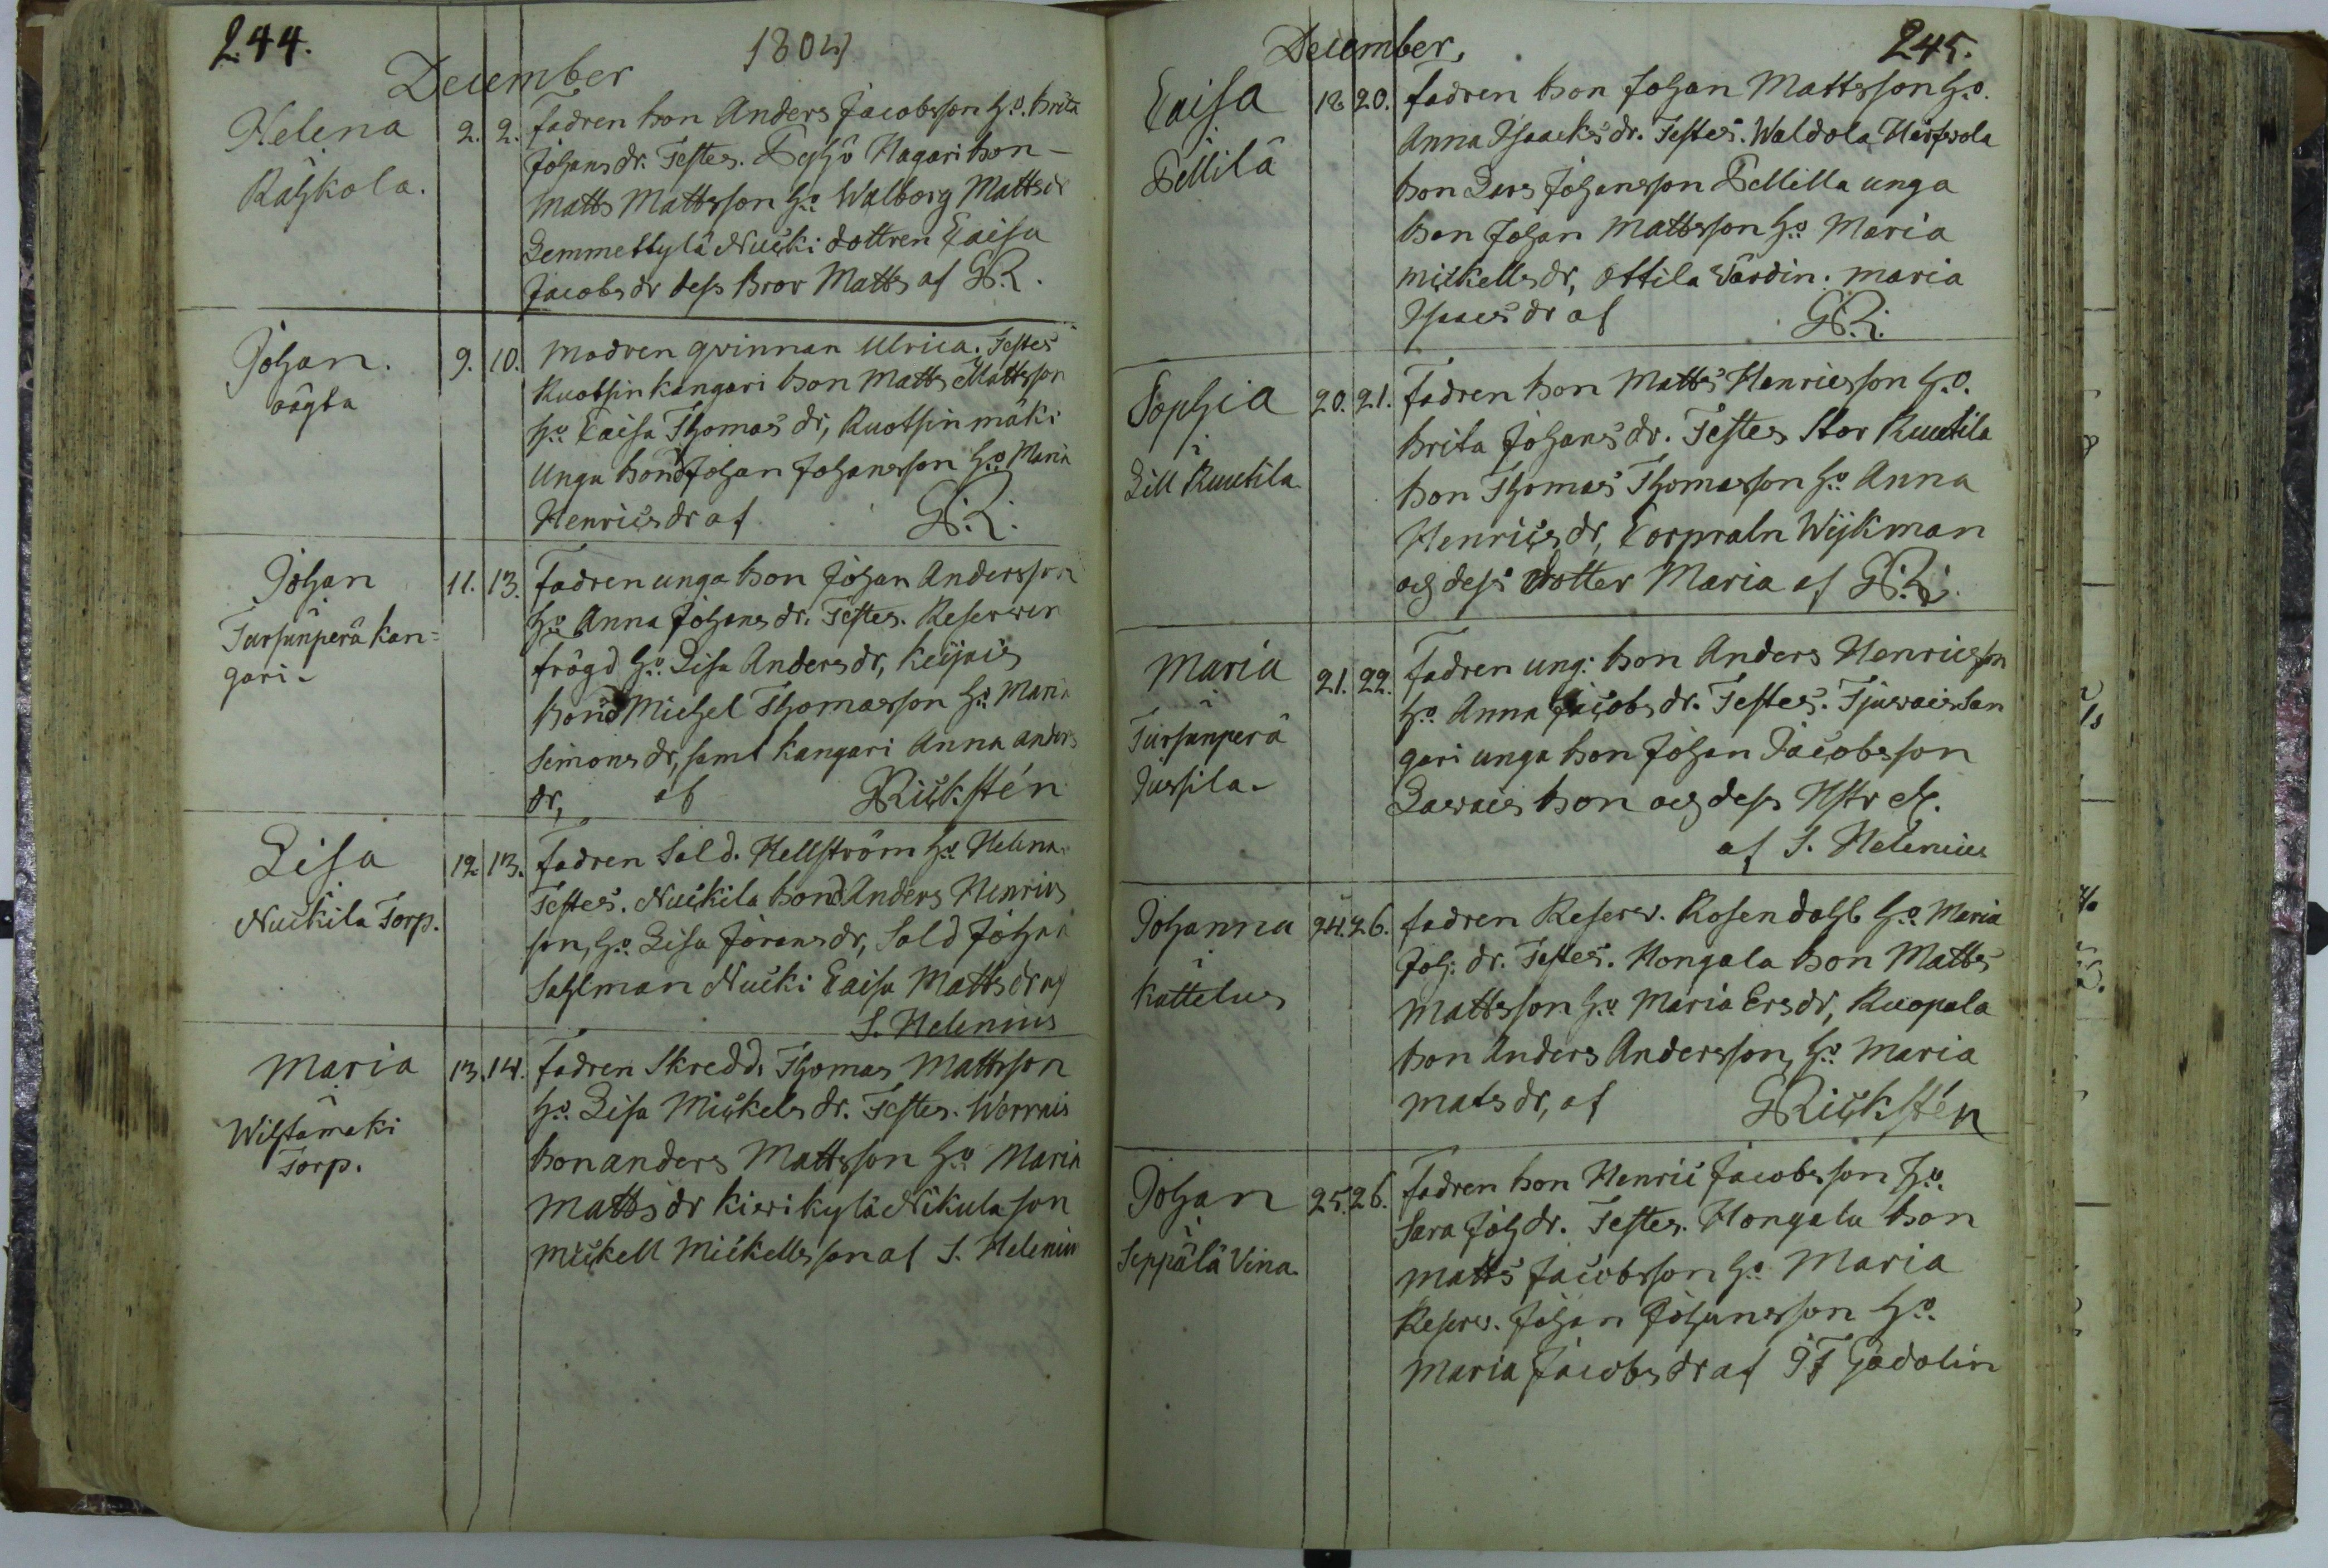 244.
1804
December
Helena
Rahkola.
2. 2. fadren bon Anders Jacobsson h:o Brita
Johans dr. Testes. Pehjö Hagari bon
Matts Mattsson h:o Walborg Matts dr
Lemmettylä Nucki dottren Caisa
Jacobs dr dess bror Matts af GR.
Johan.
oägta
9. 10. modren qvinnan Ulrica. Testes
Ruotsin kangari bon Matts Mattsson
h:o Caisa Thomas dr, Ruotsin mäki
unga bond Johan Johansson h:o Maria
Henrics dr af G.R.
Johan
Tursunperä kan=
gari
11. 13. Fadren unga bon Johan Andersson
h:o Anna Johans dr. Testes. Reserven
frögd h:o Lisa Anders dr, Keijais
bond Michel Thomasson h:o Maria
Simons dr, samt Kangari Anna Anders
dr, af GRickstén
Lisa
Nuckila Torp.
12. 13. fadren Sold. Hellström h:o Helena
Testes. Nuckila bond Anders Henrics
son, h:o Lisa Jörans dr, Sold Johan
Sahlman Nucki Caisa Matts dr af
S. Helenius
Maria
Wihtämäki
Torp.
13. 14. fadren Skredd. Thomas Mattsson
h:o Lisa Mickels dr. Testes. Werrais
bon anders Mattsson h:o Maria
Matts dr Kiwikylä Nikula son
Mickell Mickellsson af S. Helenius
December,
245.
Caisa
Pellilä
18 20. fadren bon Johan Mattsson h:o.
Anna Isaacks dr. Testes. Waldola Harfvola
bon Lars Johansson Pellilla unga
bon Johan Mattsson h:o Maria
Mickells dr, Ottila Värdin. Maria
Isaacs dr af G.R.
Sophia
Lill Ruutila
20. 21. fadren bon Matts Henricsson h:o.
Brita Johans dr. Testes Stor Ruutila
bon Thomas Thomasson h:o Anna
Henrics dr, Corpraln Wijkman
och dess dotter Maria af G.R.
Maria
Tursunperä
Jussila
21. 22. fadren ung: bon Anders Henricsson
h:o Anna Jacobs dr. Testes. Tjuvais San
gari unga bon Johan Jacobsson
Lawais bon och dess Hstr etc.
af S. Helenius
Johanna
Kattelus
24. 26. fadren Reserv. Rosendahl h:o Maria
Joh: dr. Testes. Hongala bon Matts
Mattsson h:o Maria Ers dr, Ruopala
bon Anders Andersson, h:o Maria
Mats dr, af GRickstén
Johan
Seppälä Vina.
25. 26. Fadren bon Henric Jacobsson h:o
Sara Joh dr. Testes. Hongala bon
Matts Jacobsson h:o Maria
Reserv. Johan Johansson h:o
Maria Jacobs dr af JF Gadolin